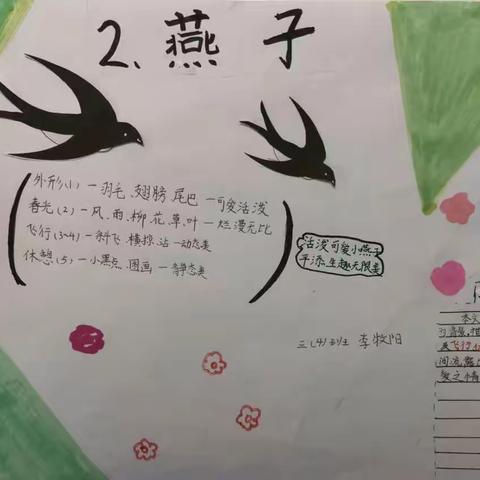 2.燕子
外形(1)—羽毛.翅膀.尾巴—可爱活泼
春光(2)—风.雨.柳.花.草.叶—烂漫无比
飞行(3~4)—斜飞.横掠.沾—动态美
休憩(5)—小黑点.图画—静态美
活泼可爱小燕子
平添生趣无限美
三(4)班 李牧阳
本文
间流露
爱之情